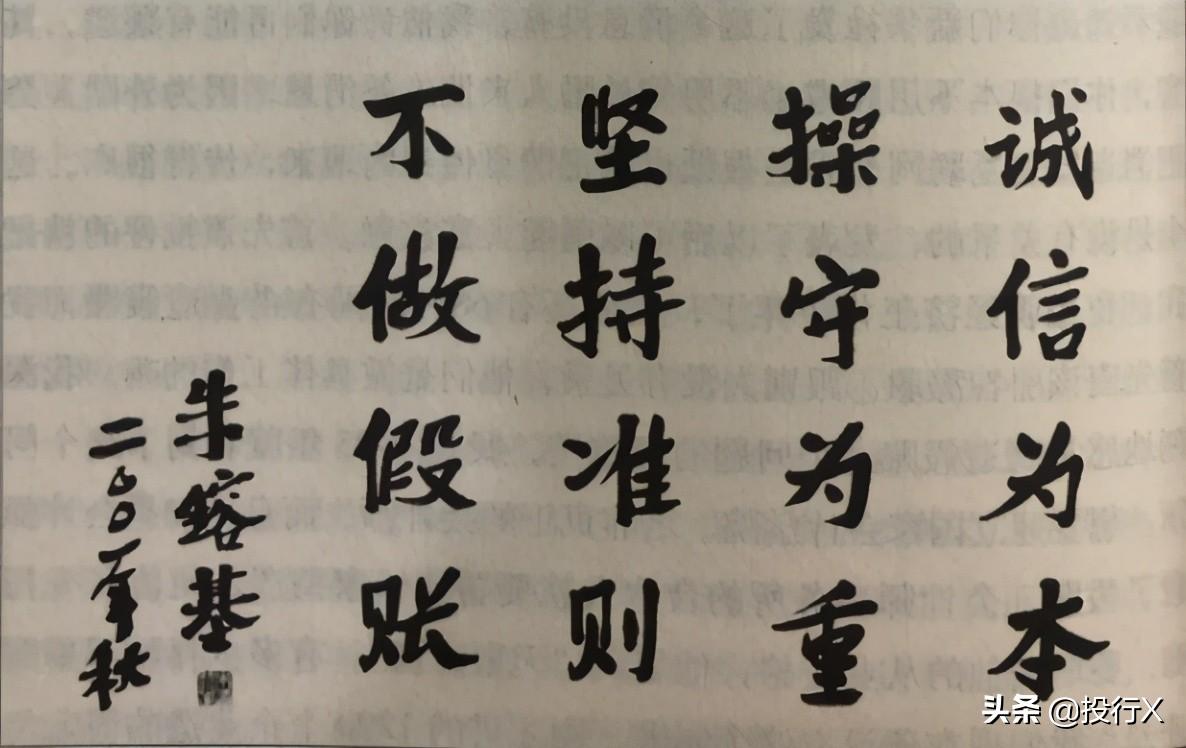 诚信为本
操守为重
坚持准则
不做假账
朱镕基
二〇〇一年秋
头条 @投行X